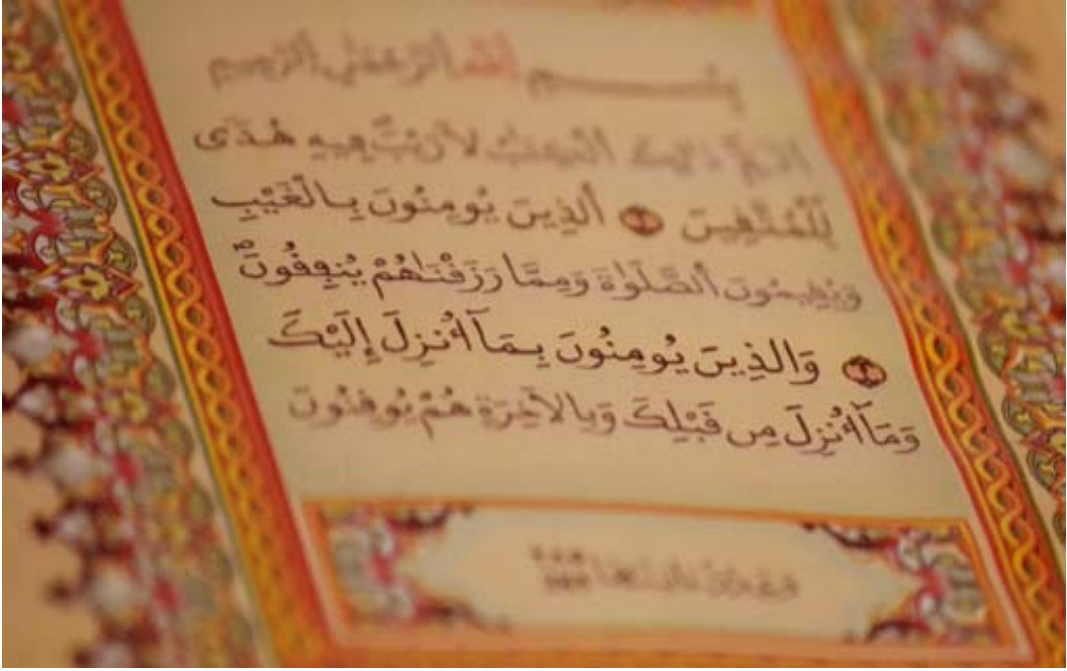 بِسْمِ اللَّهِ الرَّحْمَٰنِ الرَّحِيمِ
أَلَمِّ ذَٰلِكَ الْكِتَٰبُ لَا رَيْبَ فِيهِ هُدىً
لِّلْمُتَّقِينَ ١ اَ۬لذِينَ يُومِنُونَ بِالْغَيْبِ
وَيُقِيمُونَ اَ۬لصَّلَوٰةَ وَمِمَّا رَزَقْنَٰهُمْ يُنفِقُونَ
٢ وَالذِينَ يُومِنُونَ بِمَآ أُنزِلَ إِلَيْكَ
وَمَآ أُنزِلَ مِن قَبْلِكَ وَبِالَاخِرَةِ هُمْ يُوقِنُونَ